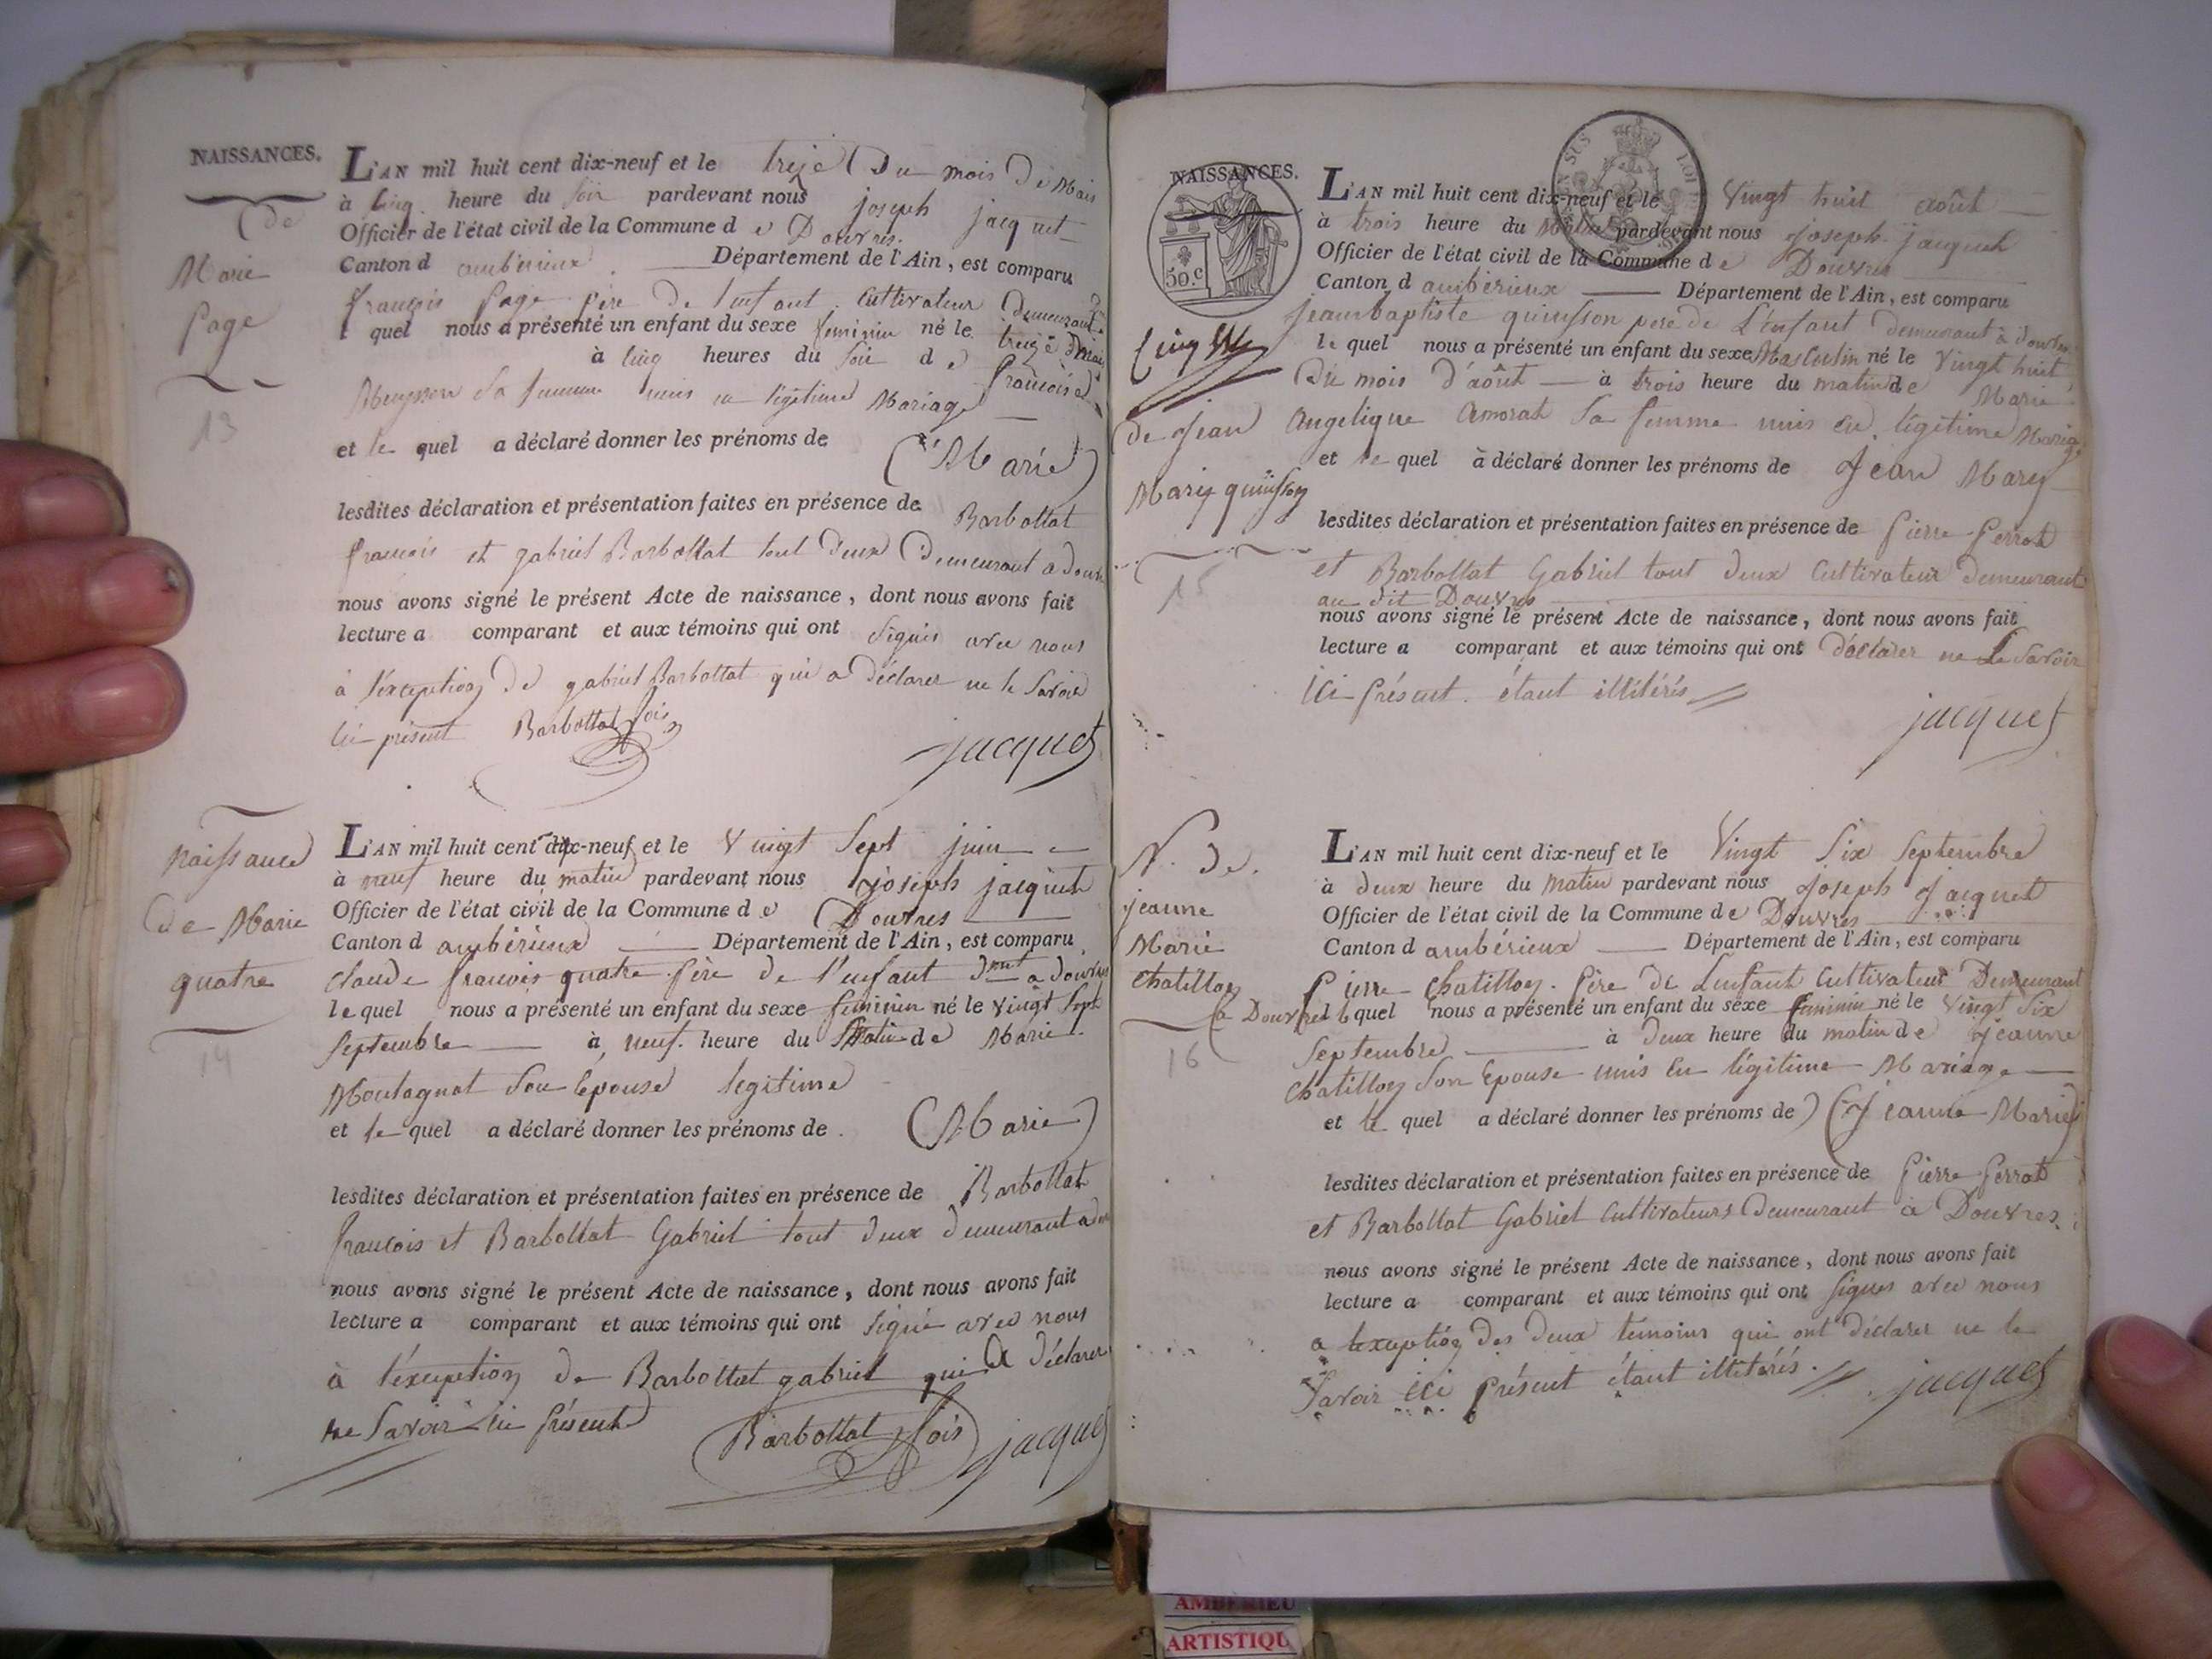 NAISSANCES.
de
Marie
Page
13
L'AN mil huit cent dix-neuf et le treize du mois de Mais
à cinq heure du soir pardevant nous joseph jacquet
Officier de l'état civil de la Commune d e Douvres.
Canton d ambérieux Département de l'Ain, est comparu
françois Page père de lenfant cultivateur demeurant
l quel nous a présenté un enfant du sexe feminin né le treize Mai
à cinq heures du soir d e françoise
sa femme unis en légitime Mariage
et le quel a déclaré donner les prénoms de (Marie)
lesdites déclaration et présentation faites en présence de Barbollat
francois et gabriel Barbollat tout deux demeurant a douvres
nous avons signé le présent Acte de naissance, dont nous avons fait
lecture a comparant et aux témoins qui ont signés avec nous
à l'exception de gabriel Barbollat qui a déclarer ne le savoir
présent Barbollat fois jacquet
naissance
de Marie
quatre
14
L'AN mil huit cent dix-neuf et le vingt sept juin
à neuf heure du matin pardevant nous joseph jacquet
Officier de l'état civil de la Commune d e Douvres
Canton d ambérieux Département de l'Ain, est comparu
claude francois quatre père de l'enfant dmnt a douvres
le quel nous a présenté un enfant du sexe feminin né le vingt sept
septembre à neuf heure du Matin de Marie
Montagnat son épouse legitime
et le quel a déclaré donner les prénoms de (Marie)
lesdites déclaration et présentation faites en présence de Barbollat
francois et Barbollat Gabriel tout deux demeurant a
nous avons signé le présent Acte de naissance, dont nous avons fait
lecture a comparant et aux témoins qui ont signé avec nous
à l'éxception de Barbollat gabriel qui a déclarer
ne savoir présent Barbollat fois jacquet
NAISSANCES.
50.c
de Jean
Mary quinson
15
L'AN mil huit cent dix-neuf et le Vingt huit août
à trois heure du Matin pardevant nous joseph jacquet
Officier de l'état civil de la Commune d e Douvres
Canton d ambérieux Département de l'Ain, est comparu
jeanbaptiste quinson pere de L'enfant demeurant à douvres
le quel nous a présenté un enfant du sexe Masculin né le Vingt huit
du mois d'août à trois heure du matin de Marie
angelique amorat sa femme unis en légitime Mariage
et le quel à déclaré donner les prénoms de Jean Mary
lesdites déclaration et présentation faites en présence de Pierre Perrot
et Barbollat Gabriel tout deux Cultivateur demeurant
au dit Douvres
nous avons signé le présent Acte de naissance, dont nous avons fait
lecture a comparant et aux témoins qui ont déclarer ne le savoir
ici présent. étant illitérés
jacquet
N. de.
jeanne
Marie
chatillon
16
L'AN mil huit cent dix-neuf et le Vingt six septembre
à deux heure du matin pardevant nous joseph jacquet
Officier de l'état civil de la Commune d e Douvres
Canton d ambérieux Département de l'Ain, est comparu
pierre chatillon. Père de Lenfant cultivateur Demeurant
a Douvres le quel nous a présenté un enfant du sexe feminin né le vingt six
septembre à deux heure du matin de jeanne
chatillon son épouse unis en légitime Mariage
et le quel a déclaré donner les prénoms de (jeanne Marie)
lesdites déclaration et présentation faites en présence de Pierre Perrot
et Barbollat Gabriel cultivateurs demeurant à Douvres.
nous avons signé le présent Acte de naissance, dont nous avons fait
lecture a comparant et aux témoins qui ont signés avec nous
a lexception des deux témoins qui ont déclarer ne le
savoir ici présent étant illitérés. jacquet
AMBÉRIEU
ARTISTIQU